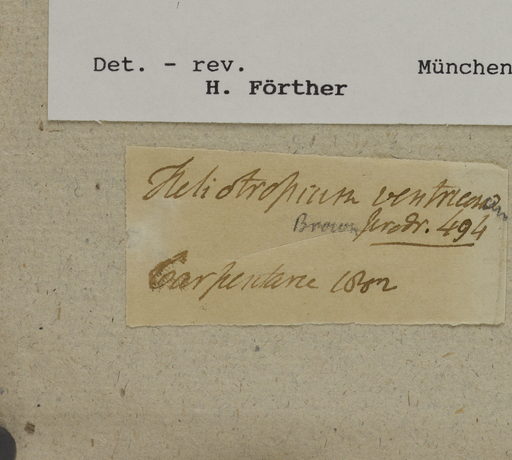 Det. - rev. München
H. Förther
Heliotropium ventricosum
Brown prodr. 494
Carpentarie